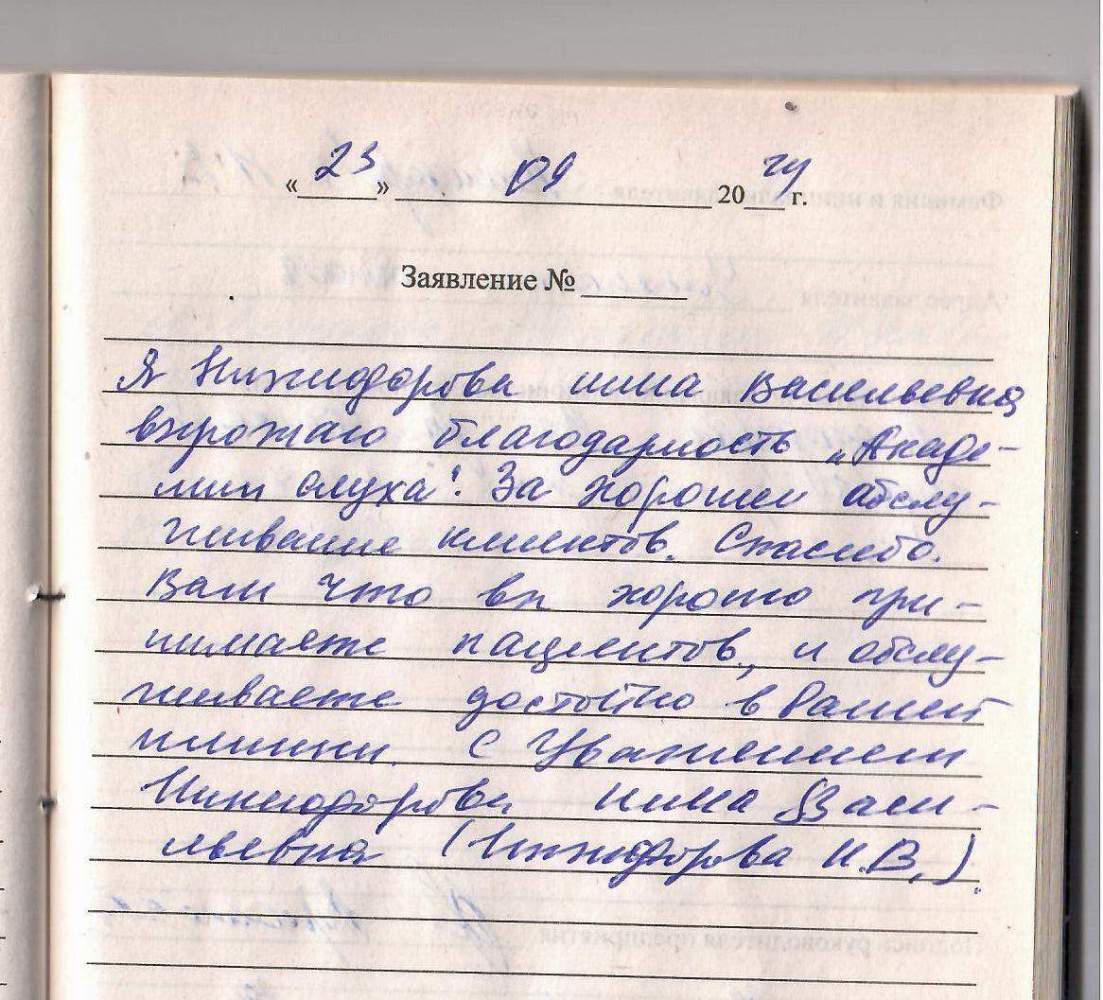 « 23 » 09 2024 г.
Заявление №
Я Никифорова нина Васильевна
выражаю благодарность „Акаде-
мии слуха". За хорошей обслу-
живание клиентов. Спасибо.
Вам что вы хорошо при-
нимаете пациентов, и обслу-
живаете достойно в вашей
клинки. С Уважением
нина Васи-
льевна ( Н.В.)